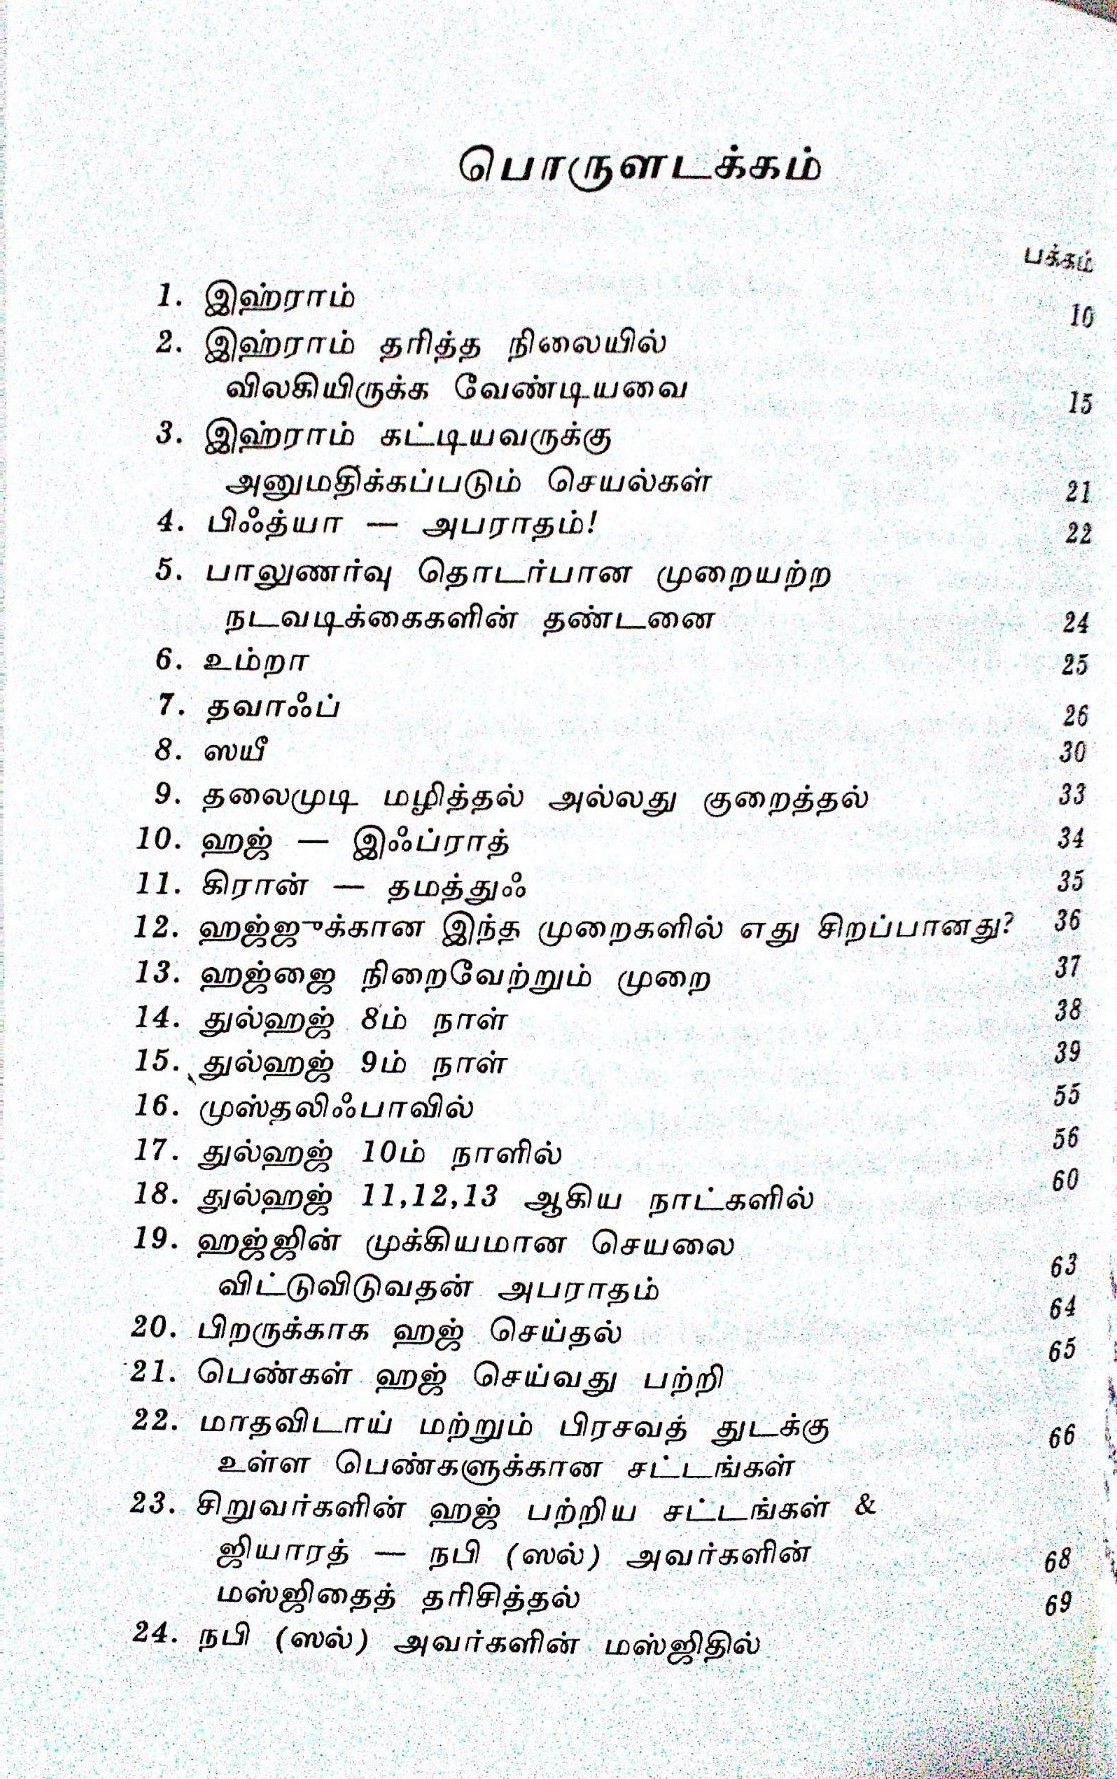 பொருளடக்கம்
பக்கம்
1. இஹ்ராம் 10
2. இஹ்ராம் தரித்த நிலையில்
விலகியிருக்க வேண்டியவை 15
3. இஹ்ராம் கட்டியவருக்கு
அனுமதிக்கப்படும் செயல்கள் 21
4. பிஃத்யா — அபராதம்! 22
5. பாலுணர்வு தொடர்பான முறையற்ற
நடவடிக்கைகளின் தண்டனை 24
6. உம்றா 25
7. தவாஃப் 26
8. ஸயீ 30
9. தலைமுடி மழித்தல் அல்லது குறைத்தல் 33
10. ஹஜ் — இஃப்ராத் 34
11. கிரான் — தமத்துஃ 35
12. ஹஜ்ஜுக்கான இந்த முறைகளில் எது சிறப்பானது? 36
13. ஹஜ்ஜை நிறைவேற்றும் முறை 37
14. துல்ஹஜ் 8ம் நாள் 38
15. துல்ஹஜ் 9ம் நாள் 39
16. முஸ்தலிஃபாவில் 55
17. துல்ஹஜ் 10ம் நாளில் 56
18. துல்ஹஜ் 11,12,13 ஆகிய நாட்களில் 60
19. ஹஜ்ஜின் முக்கியமான செயலை
விட்டுவிடுவதன் அபராதம் 63
20. பிறருக்காக ஹஜ் செய்தல் 64
21. பெண்கள் ஹஜ் செய்வது பற்றி 65
22. மாதவிடாய் மற்றும் பிரசவத் துடக்கு
உள்ள பெண்களுக்கான சட்டங்கள் 66
23. சிறுவர்களின் ஹஜ் பற்றிய சட்டங்கள் &
ஜியாரத் — நபி (ஸல்) அவர்களின்
மஸ்ஜிதைத் தரிசித்தல் 68
24. நபி (ஸல்) அவர்களின் மஸ்ஜிதில் 69